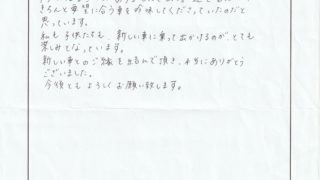 きちんと希望に合う車を吟味してくださっていたのだと
思っています。
私も子供たちも、新しい車に乗って出かけるのが、とても
楽しみとなっています。
新しい車とのご縁を結んで頂き、本当にありがとう
ございました。
今後とも よろしくお願い致します。